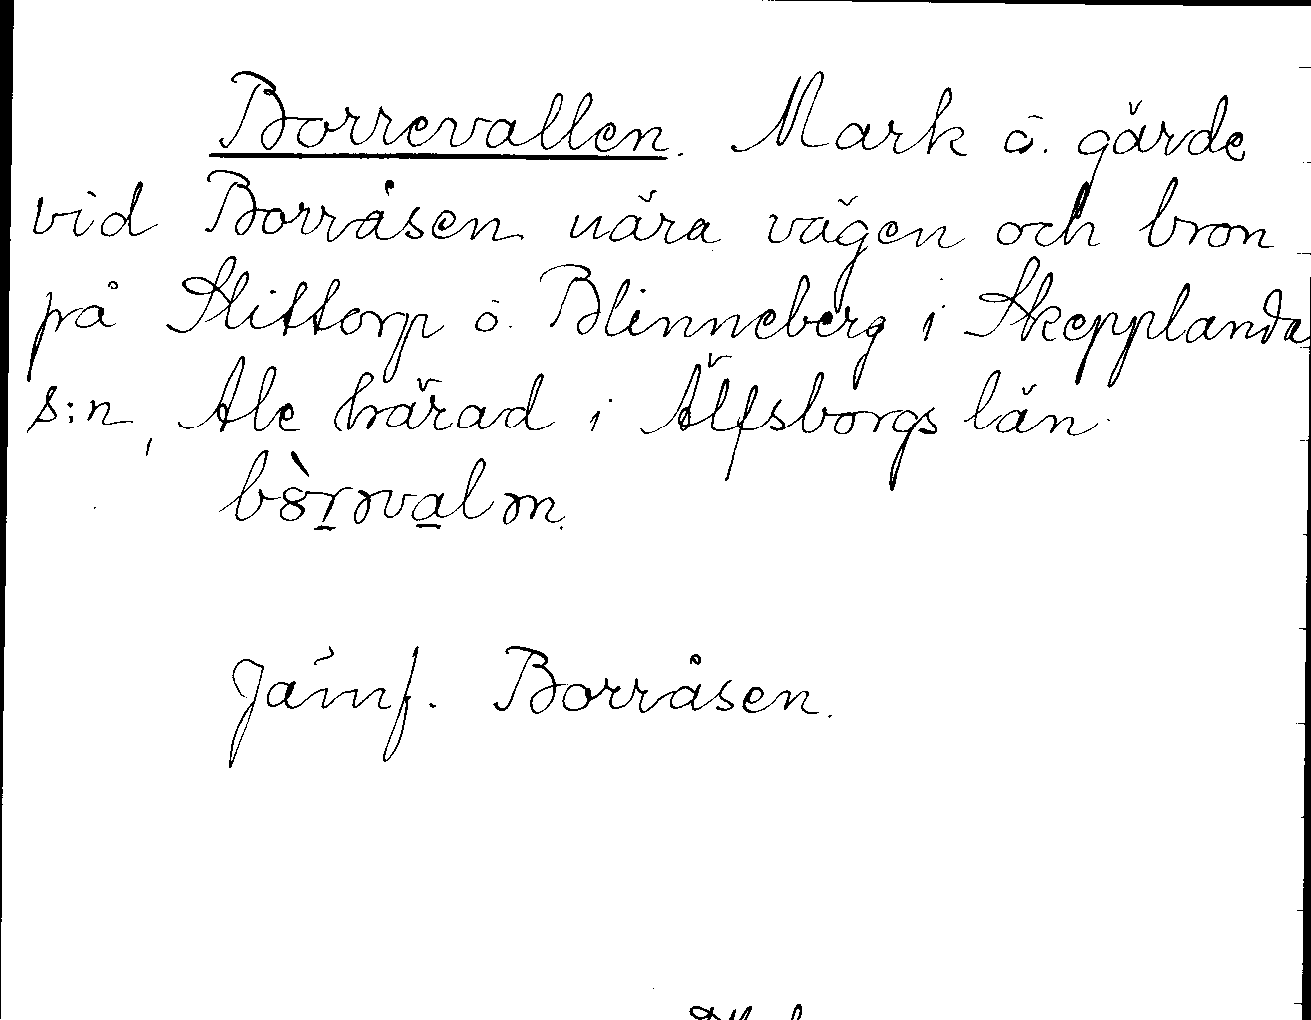 Borrevallen. Mark o. gärde
vid Borråsen nära vägen och bron
på Slittorp o. Blinneberg i Skepplanda
s:n, Ale härad i Älfsborgs län.
Jämf. Borråsen.